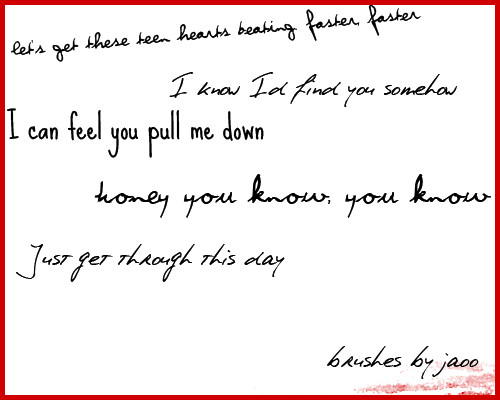 let's get these teen hearts beating faster, faster
I know I'd find you somehow
I can feel you pull me down
honey you know, you know
Just get through this day
brushes by jaoo